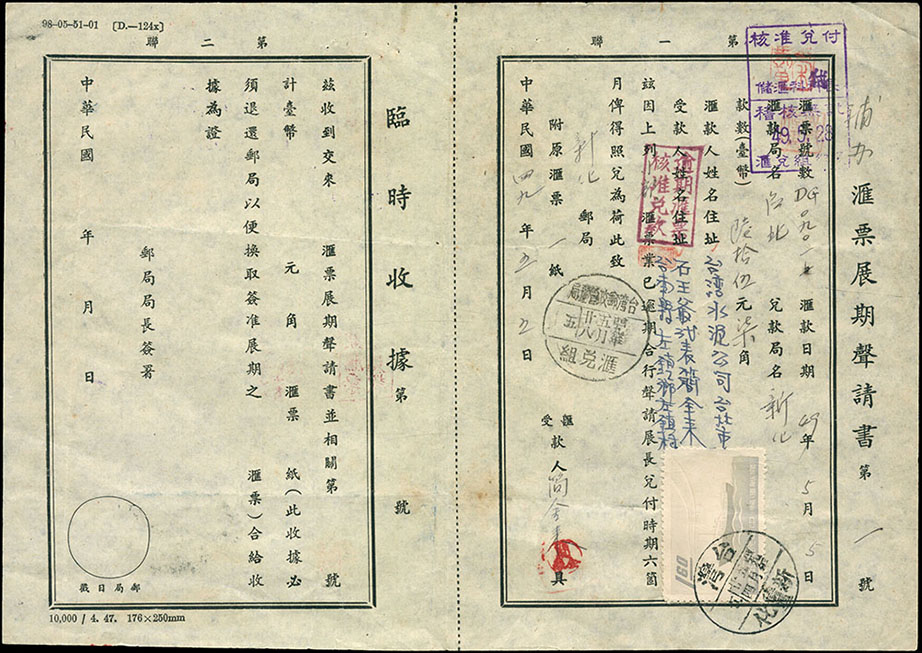 98-05-51-01 〔D.—124x〕
第一聯
匯票展期聲請書 第 一 號
匯票號數 DG
匯款日期 49年 5月 5日
匯款局名 台北
兌款局名 新化
款數(臺幣) 陸拾伍元柒角
匯款人姓名住址 台湾水泥公司台北市
受款人姓名住址 石王爺代表簡金來
台南縣左鎮鄉左鎮村
茲因上列 匯票業已逾期合行聲請展長兌付時期六箇
月俾得照兌為荷此致
新化 郵局
附原匯票 一 紙
中華民國 四九 年 五 月 五 日
匯
受 款人 簡金來 具
核准兌付
儲匯科
稽核
49. 5. 28
匯兌組
逾期匯票
核准兌款
台灣郵政管理局
匯兌組
台灣
新化
060
第二聯
臨時收據 第 號
茲收到交來 匯票展期聲請書並相關第 號
計臺幣 元 角 匯票 紙(此收據必
須退還郵局以便換取簽准展期之 匯票)合給收
據為證
郵局局長簽署
中華民國 年 月 日
郵局日戳
10,000 / 4. 47. 176×250mm